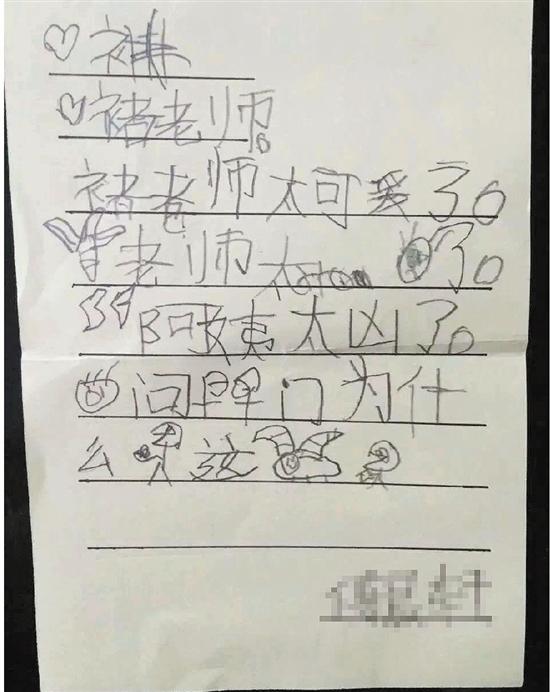 褚老师。
褚老师太可爱了。
老师太了。
阿姨太凶了。
问门为什
么这